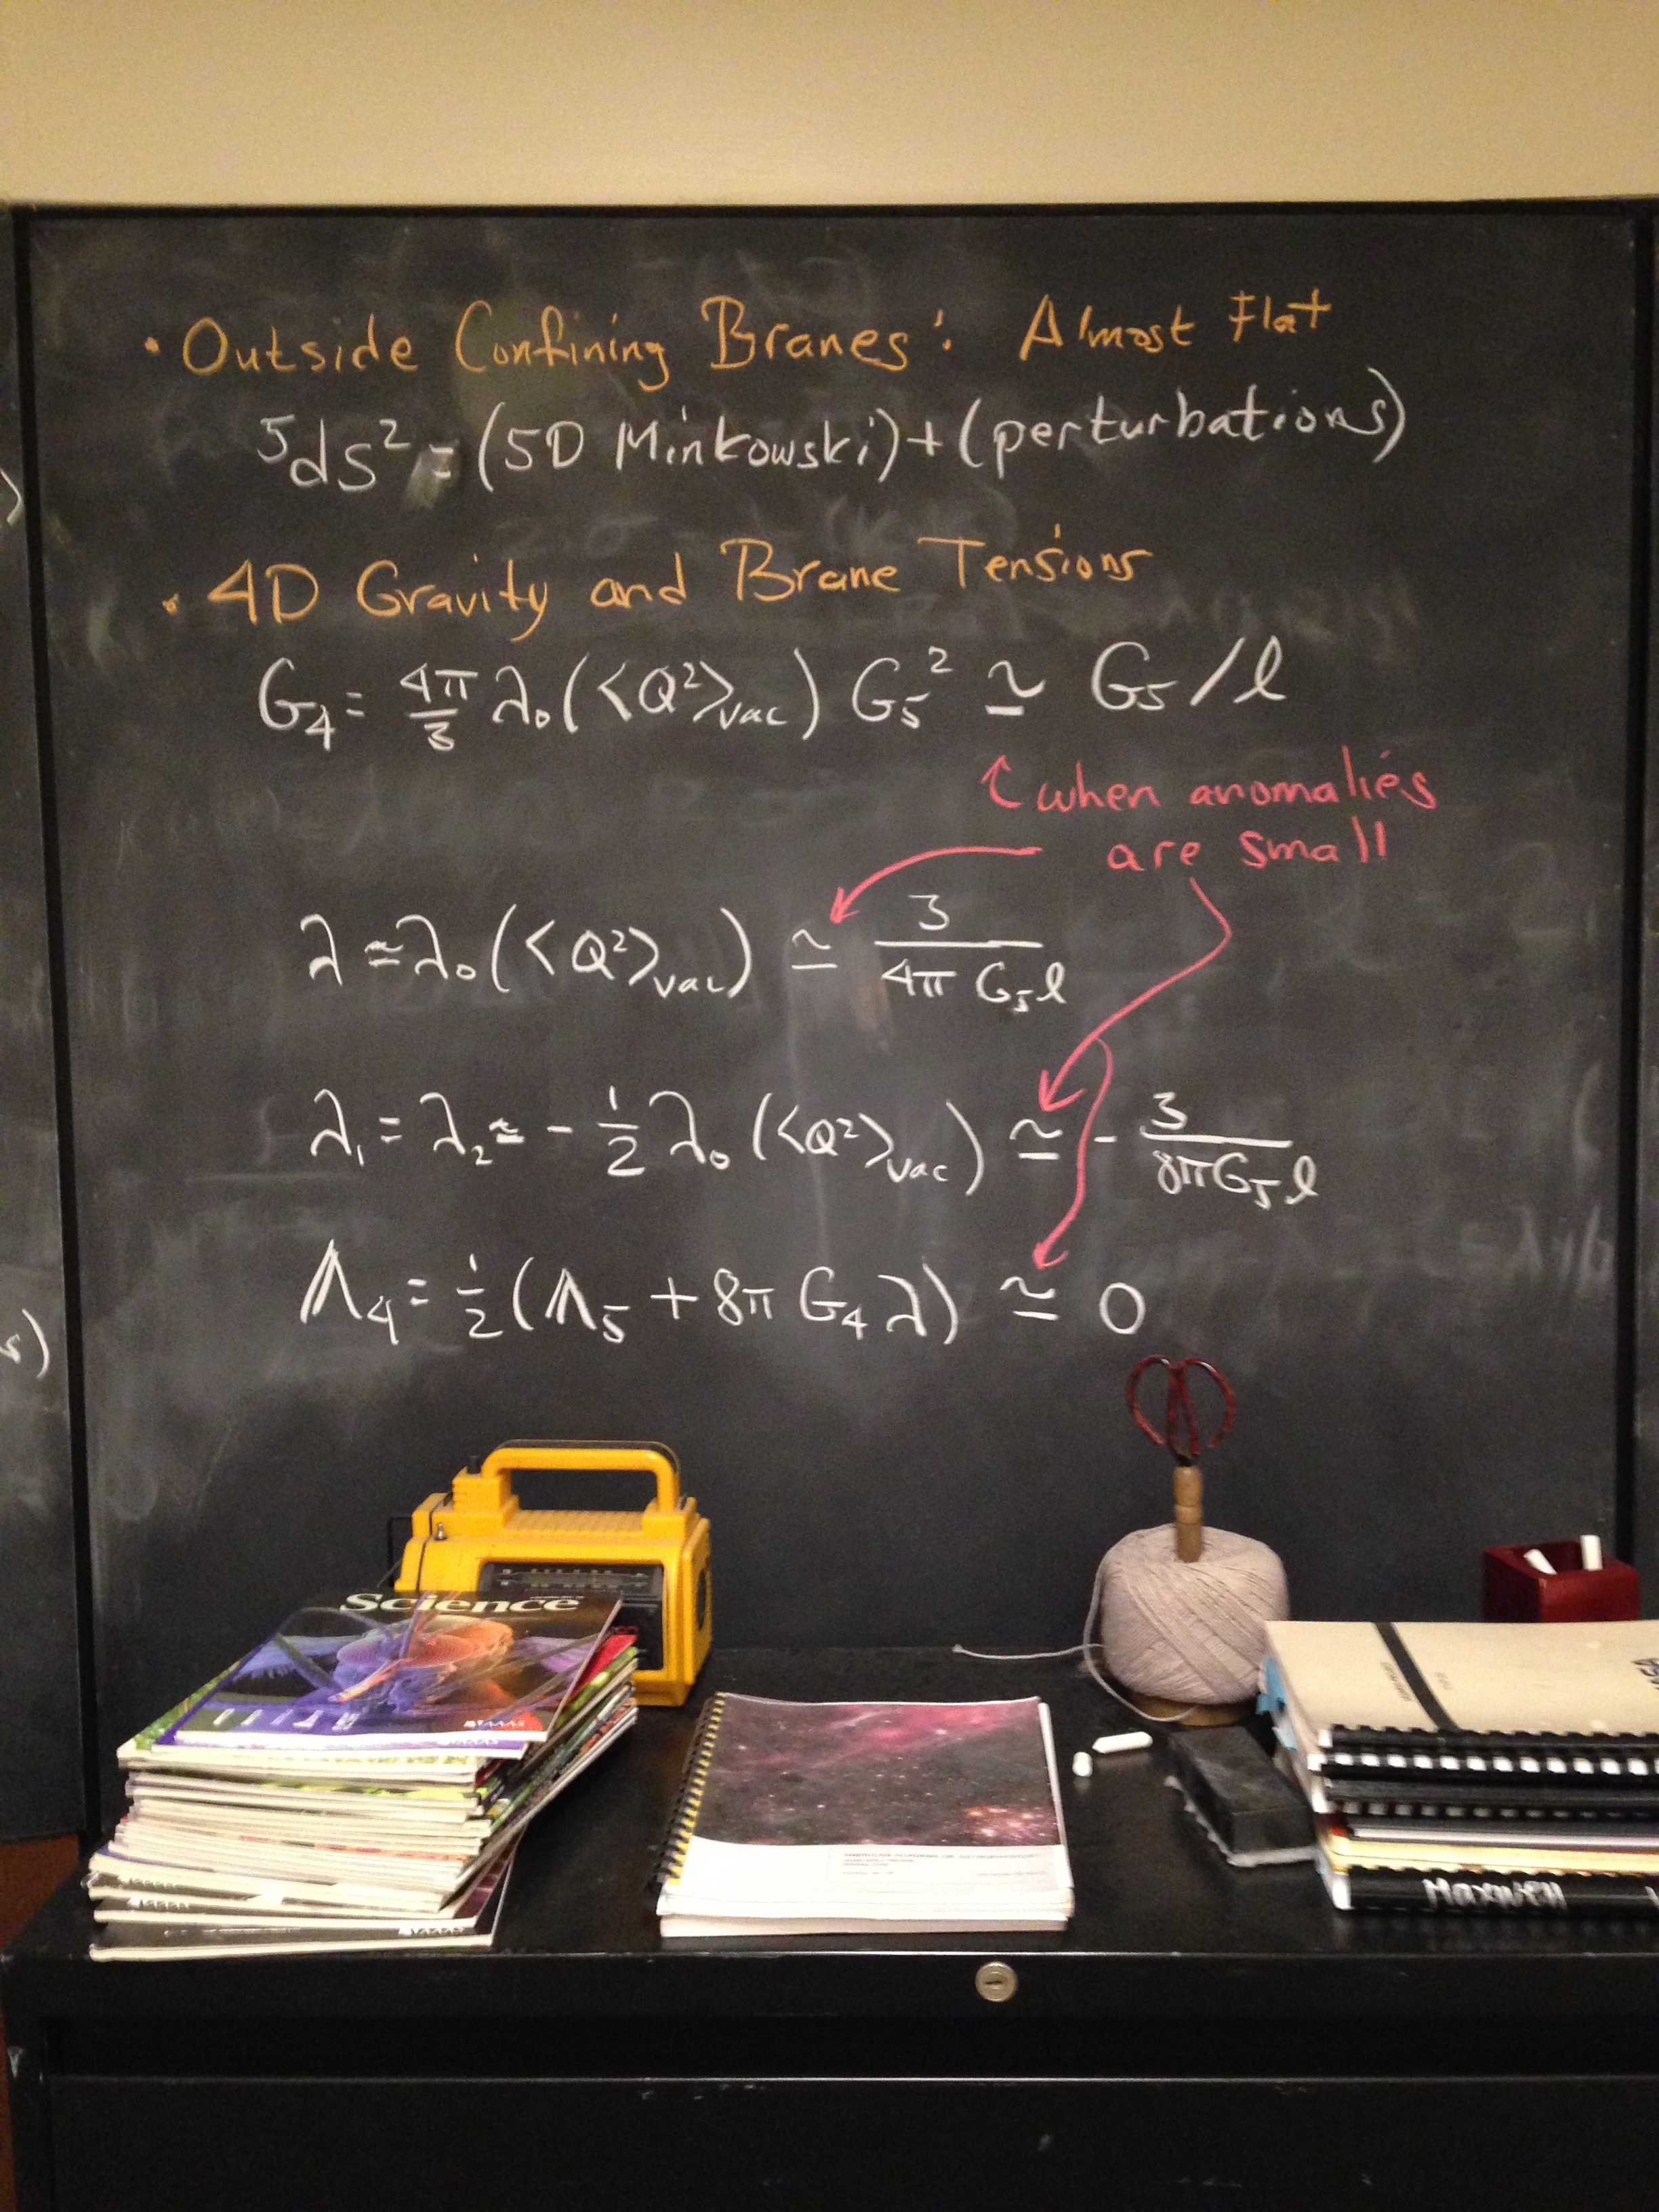 • Outside Confining Branes: Almost Flat
⁵ds² = (5D Minkowski) + (perturbations)
• 4D Gravity and Brane Tensions
G₄ = 4π/3 λ₀(<Q²>vac) G₅² ≃ G₅/l
↑ when anomalies
are small
λ ≃ λ₀(<Q²>vac) ≃ 3/(4π G₅l)
λ₁ = λ₂ ≃ - 1/2 λ₀ (<Q²>vac) ≃ - 3/(8πG₅l)
Λ₄ = 1/2 (Λ₅ + 8π G₄ λ) ≃ 0
s)
Science
AAAS
Maxwell